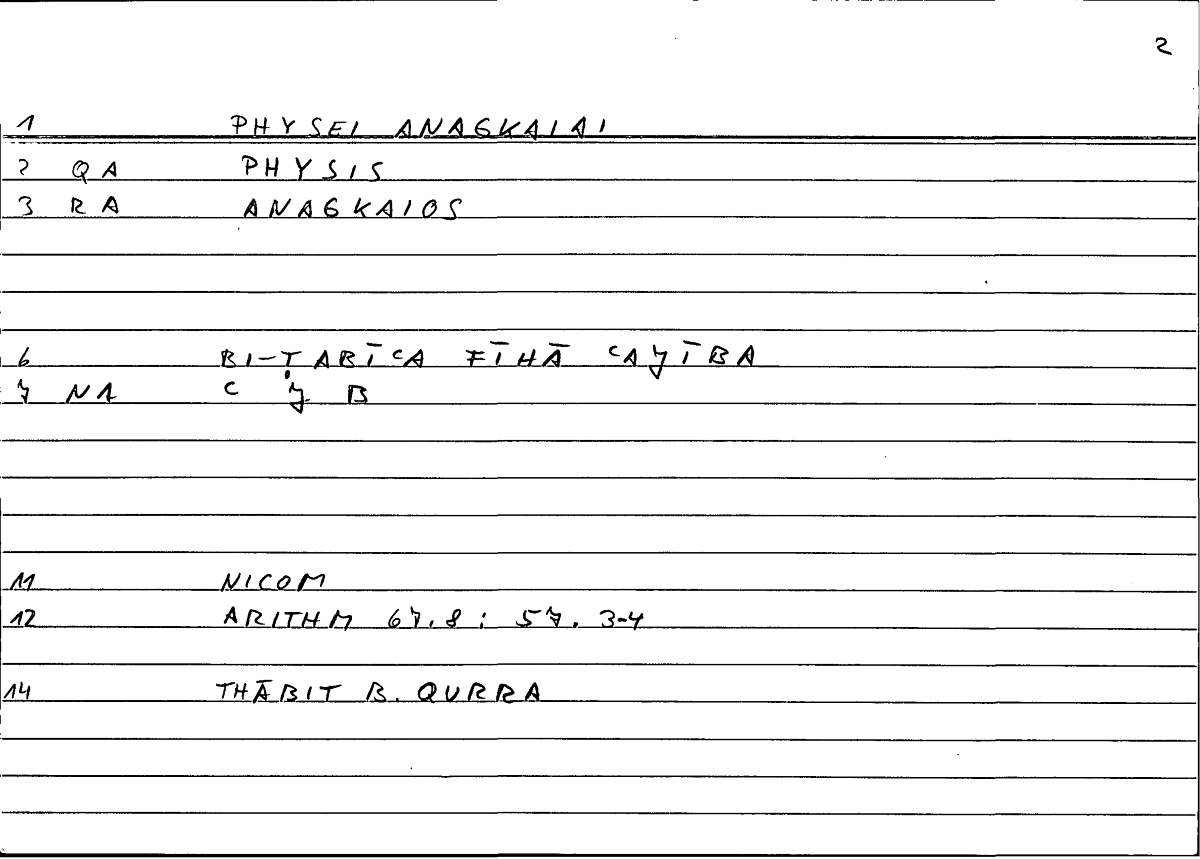 2
1 PHYSEI ANAGKAIAI
2 QA PHYSIS
3 RA ANAGKAIOS
6 BI-ṬABĪcA FĪHĀ cAǦĪBA
7 NA c ǧ B
11 NICOM
12 ARITHM 67.8 : 57.3-4
14 THĀBIT B. QURRA